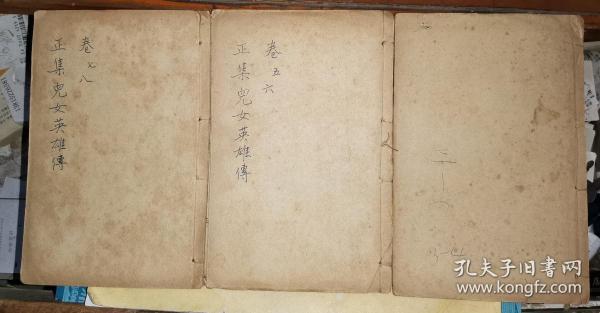 卷七八
正集兒女英雄傳
卷五六
正集兒女英雄傳
孔夫子旧书网
www.kongfz.com